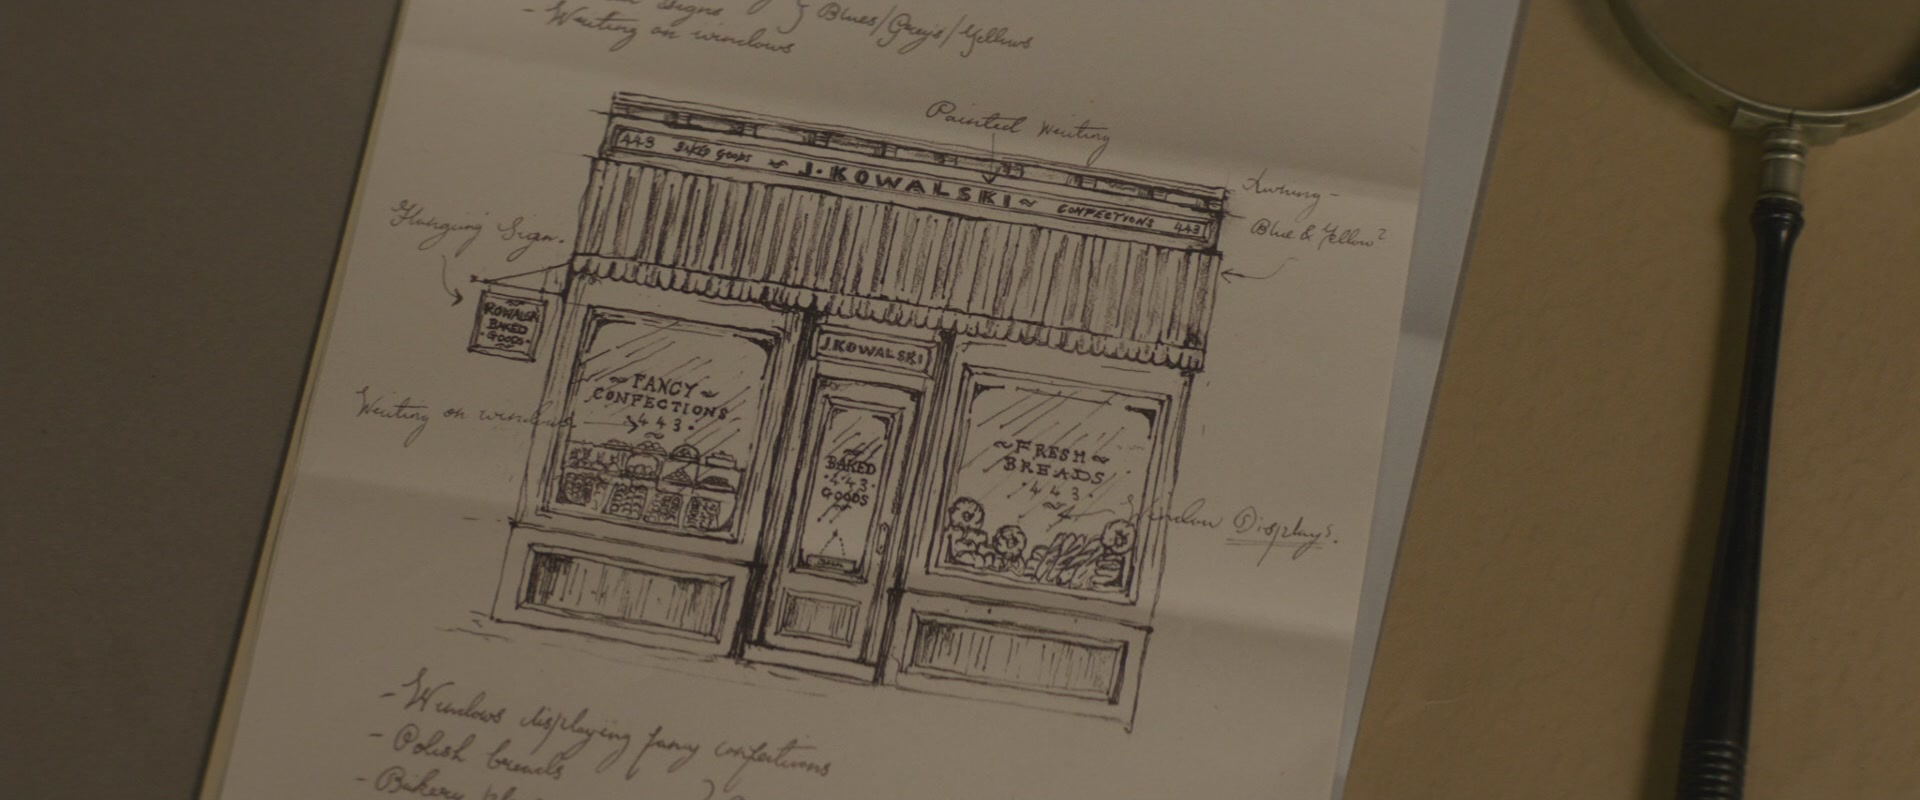 signs } Blues/Greys/Yellows
- Writing on windows
Painted Writing
443 BAKED GOODS ~ J.KOWALSKI ~ CONFECTIONS 443
Awning -
Blue & Yellow?
Hanging Sign.
KOWALSKI
BAKED
GOODS
J.KOWALSKI
~ FANCY ~
CONFECTIONS
· 443 ·
Writing on windows
BAKED
· 443 ·
GOODS
~ FRESH ~
BREADS
· 443 ·
Window Displays.
- Windows displaying fancy confections
- Polish breads
- Bakery